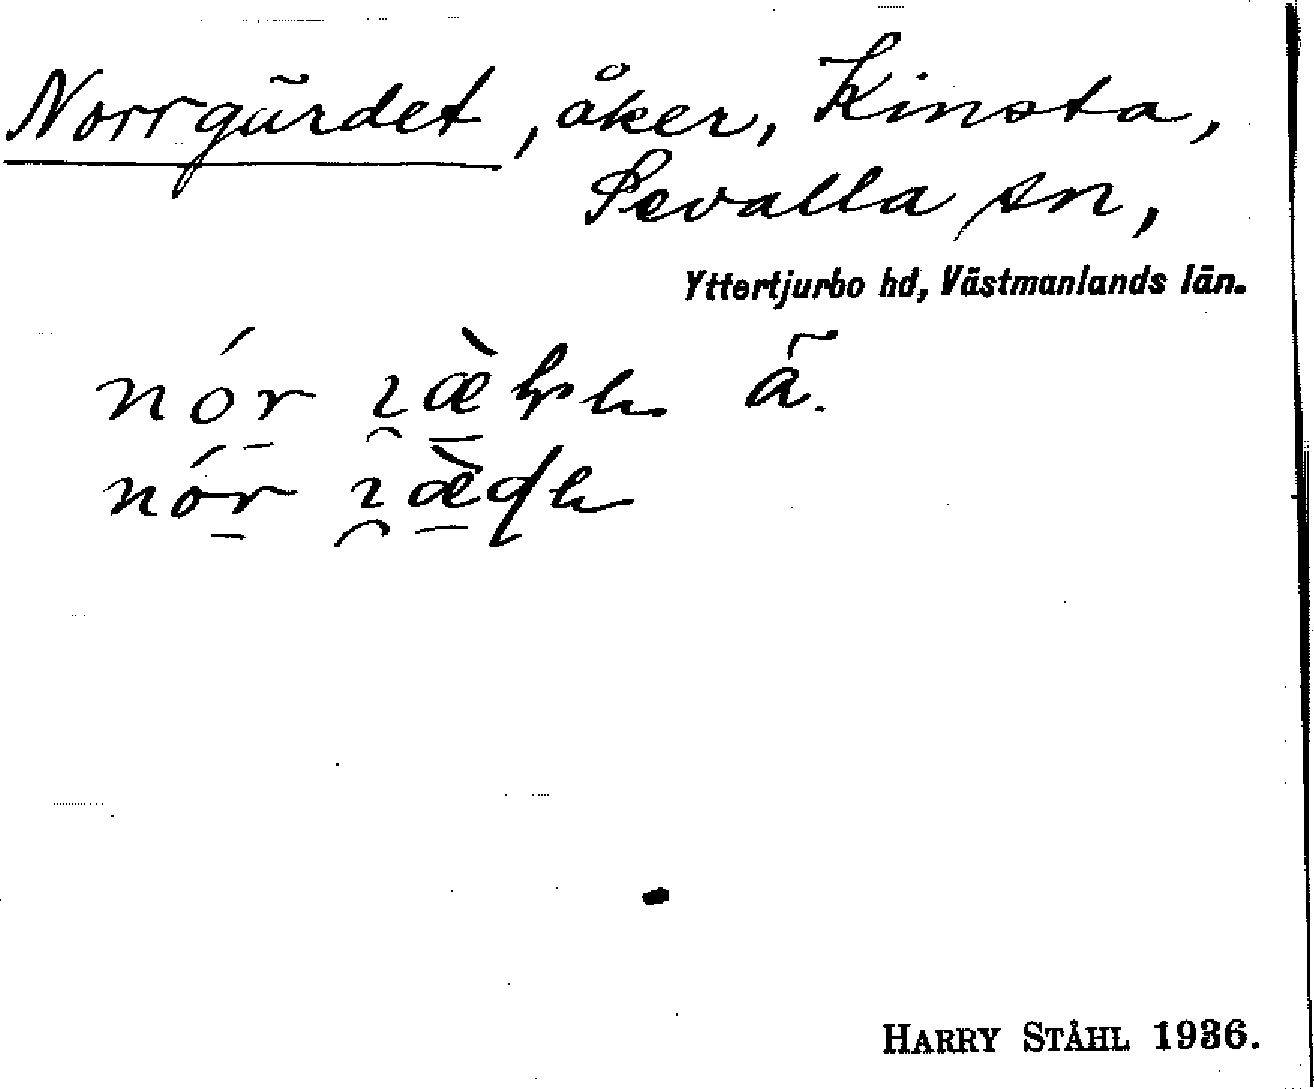 Norrgärdet, åker, Kinsta,
Sevalla sn,
Yttertjurbo hd, Västmanlands län.
ä.
HARRY STÅHL 1936.